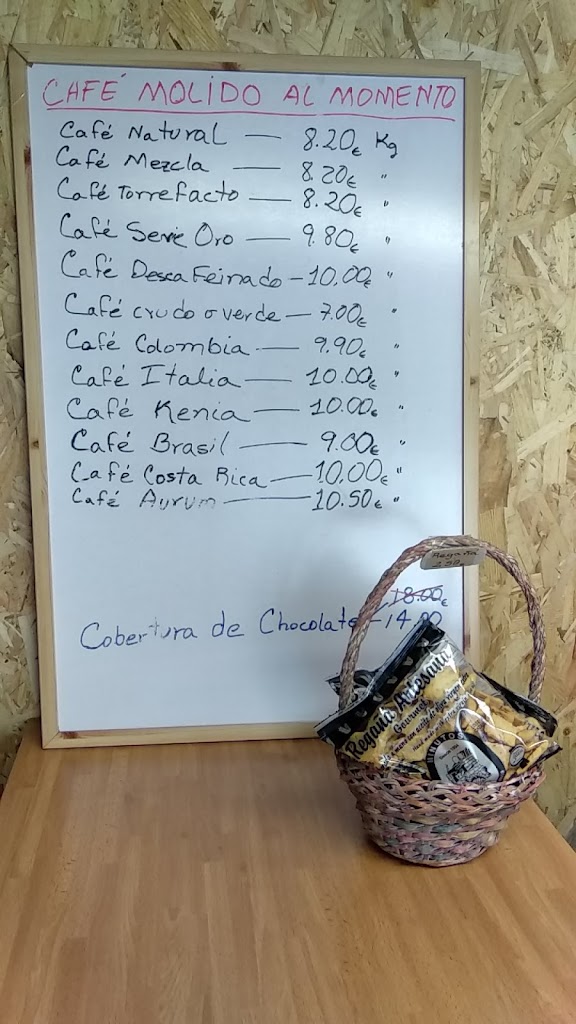 CAFÉ MOLIDO AL MOMENTO
Café Natural — 8.20€ Kg
Café Mezcla — 8.20€ "
Café Torrefacto — 8.20€ "
Café Serie Oro — 9.80€ "
Café Descafeinado — 10.00€ "
Café crudo o verde — 7.00€ "
Café Colombia — 9.90€ "
Café Italia — 10.00€ "
Café Kenia — 10.00€ "
Café Brasil — 9.00€ "
Café Costa Rica — 10.00€ "
Café Aurum — 10.50€ "
18.00€
Cobertura de Chocolate — 14.00
Regaña
Regañá Artesana
Gourmet